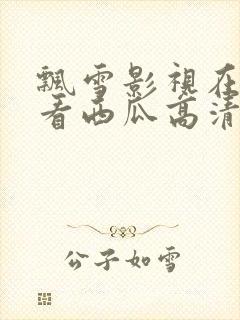 飄雪影視在
看西瓜高清
公子如雪